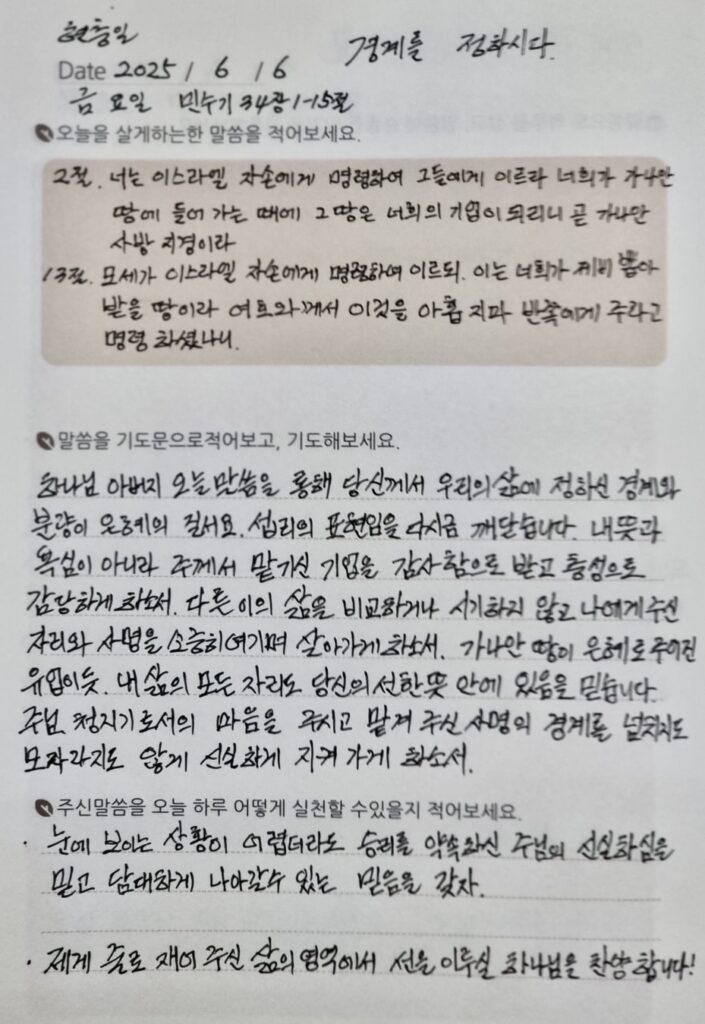 현충일
경계를 정하시다.
Date 2025 / 6 / 6
금요일 민수기 34장 1-15절
오늘을 살게하는한 말씀을 적어보세요.
2절. 너는 이스라엘 자손에게 명령하여 그들에게 이르라 너희가 가나안
땅에 들어 가는 때에 그 땅은 너희의 기업이 되리니 곧 가나안
사방 지경이라
13절. 모세가 이스라엘 자손에게 명령하여 이르되. 이는 너희가 제비 뽑아
받을 땅이라 여호와께서 이것을 아홉 지파 반쪽에게 주라고
명령 하셨나니.
말씀을 기도문으로적어보고, 기도해보세요.
하나님 아버지 오늘 말씀을 통해 당신께서 우리의 삶에 정하신 경계와
분량이 은혜의 질서요. 섭리의 표현임을 다시금 깨닫습니다. 내 뜻과
욕심이 아니라 주께서 맡기신 기업을 감사함으로 받고 충성으로
감당하게 하소서. 다른 이의 삶을 비교하거나 시기하지 않고 나에게 주신
자리와 사명을 소중히여기며 살아가게 하소서. 가나안 땅이 은혜로 주어진
유업이듯. 내 삶의 모든 자리도 당신의 선한 뜻 안에 있음을 믿습니다.
주님 청지기로서의 마음을 주시고 맡겨 주신 사명의 경계를 넘치지도
모자라지도 않게 신실하게 지켜 가게 하소서.
주신말씀을 오늘 하루 어떻게 실천할 수있을지 적어보세요.
· 눈에 보이는 상황이 어렵더라도 승리를 약속하신 주님의 신실하심을
믿고 담대하게 나아갈수 있는 믿음을 갖자.
· 제게 줄로 재어 주신 삶의 영역에서 선을 이루실 하나님을 찬양 합니다!